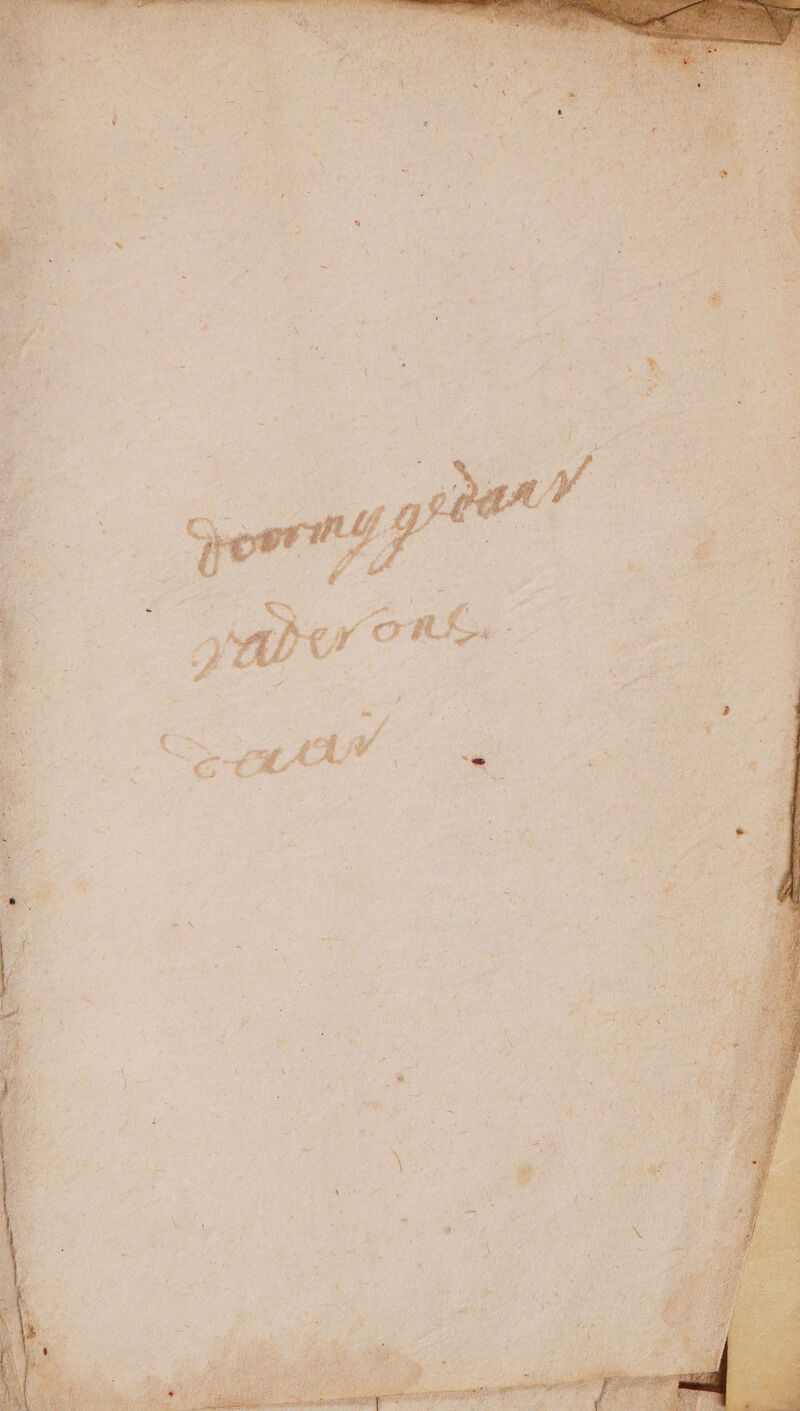 door my gedaan
vader ons
daar